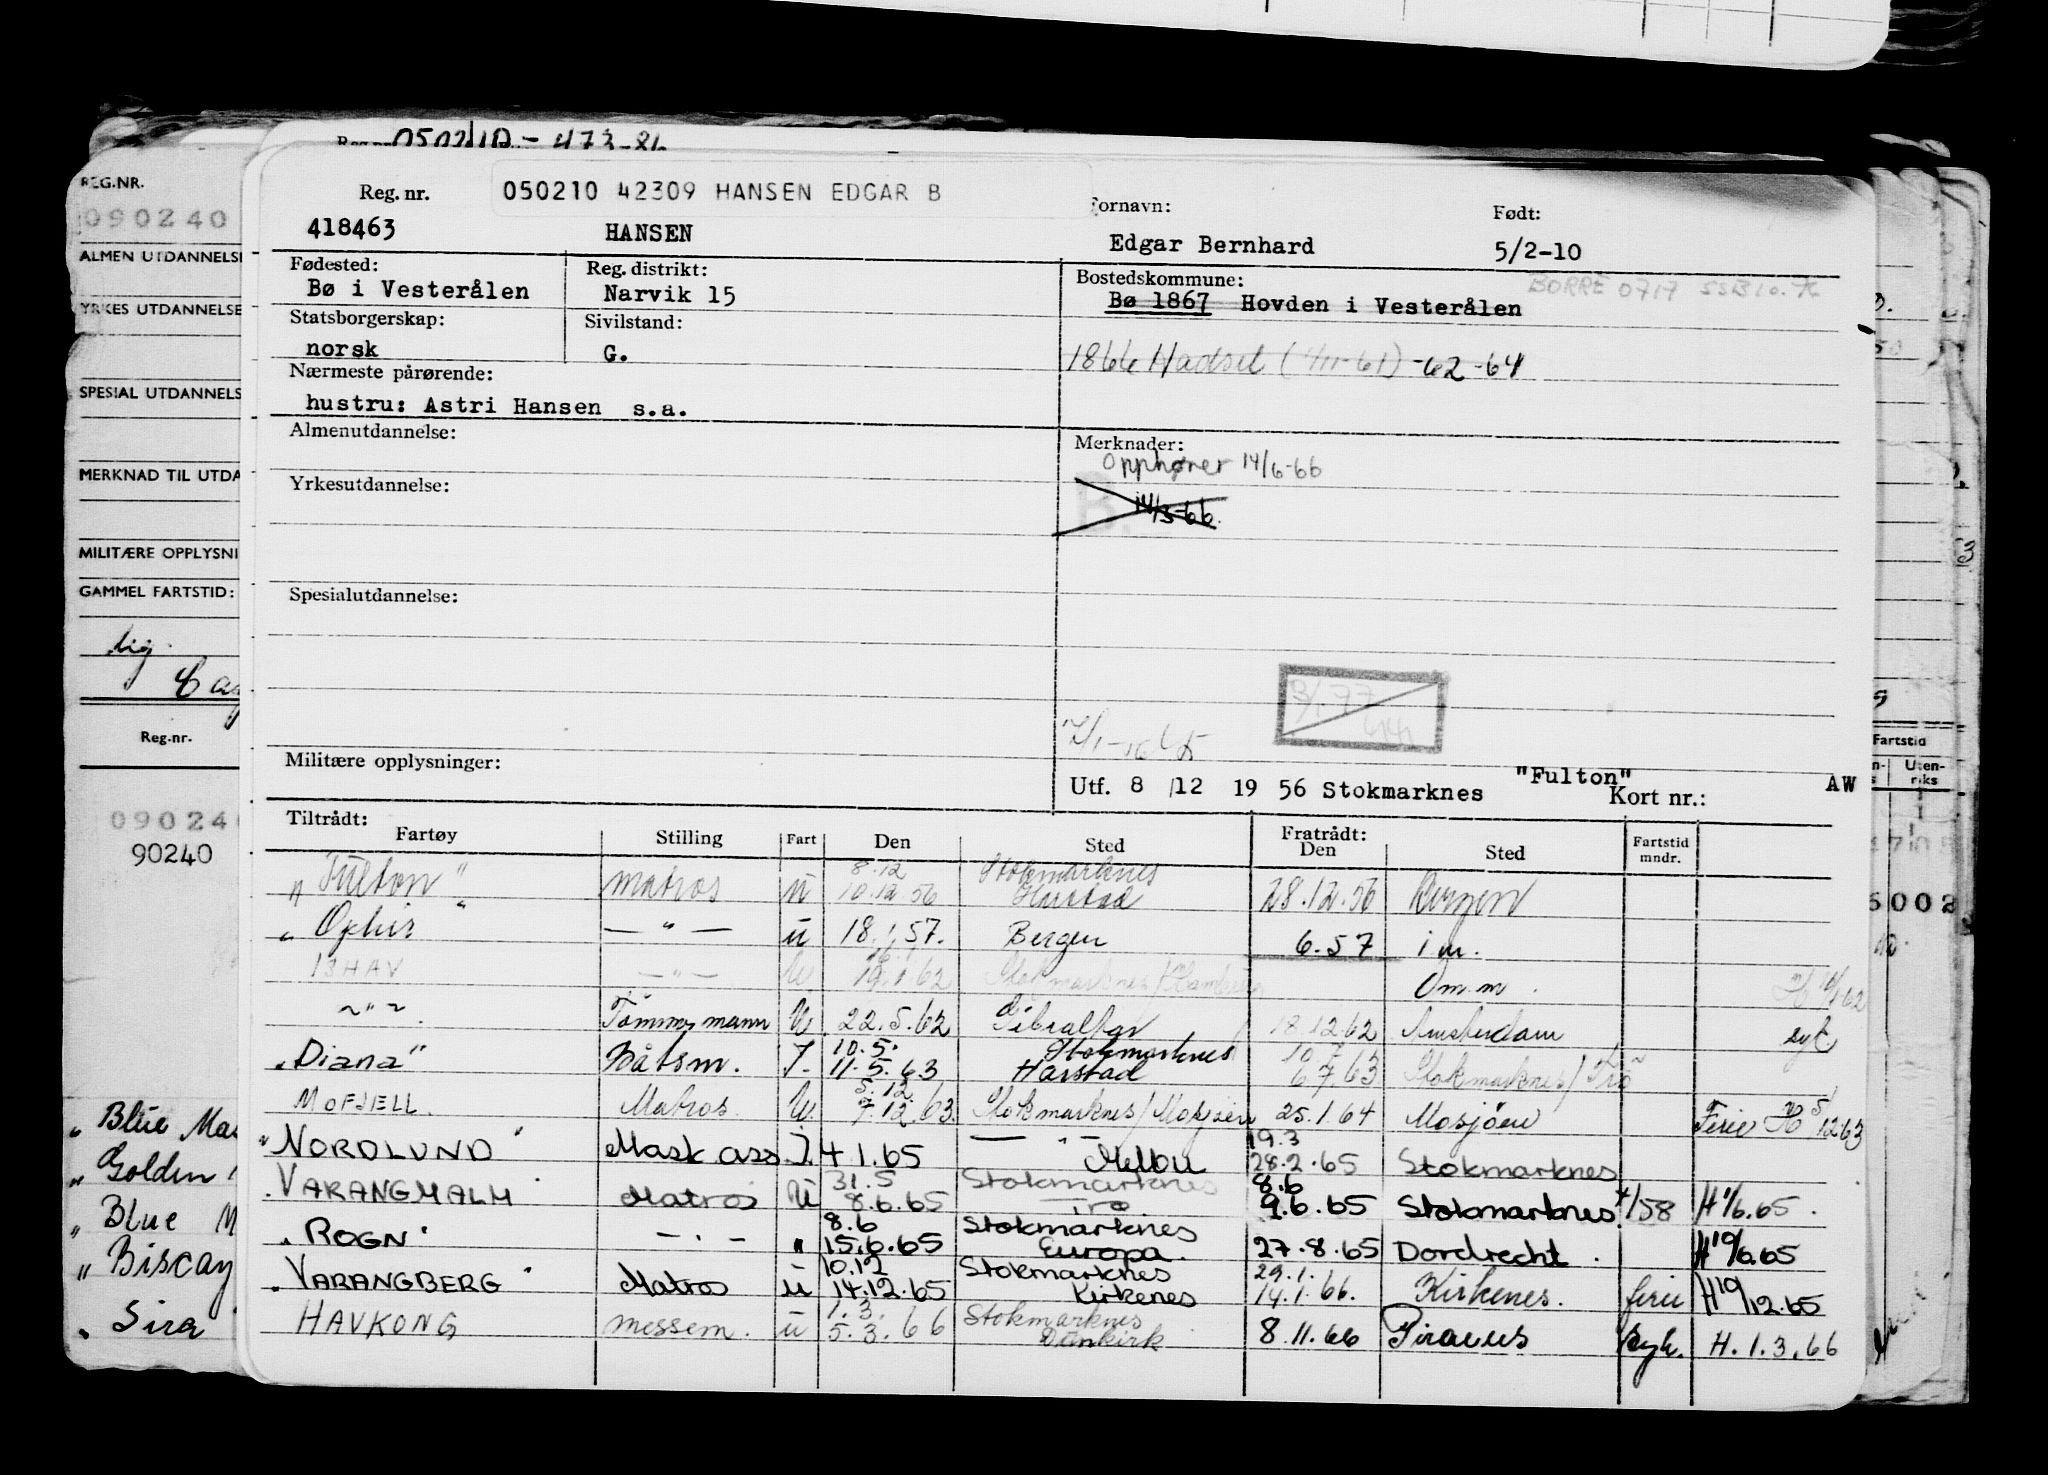 050210 - 473-86
REG.NR.
090240
ALMEN UTDANNELSE
YRKES UTDANNELSE
SPESIAL UTDANNELS
MERKNAD TIL UTDA
MILITÆRE OPPLYSNI
GAMMEL FARTSTID:
Reg.nr.
090240
90240
"Blue Ma
"Golden
"Blue M
"Biscay
"Sira
Reg. nr. 050210 42309 HANSEN EDGAR B Fornavn: Født:
418463 HANSEN Edgar Bernhard 5/2-10
Fødested: Reg. distrikt: Bostedskommune: BORRE 0717
Bø i Vesterålen Narvik 15 Bø 1867 Hovden i Vesterålen
Statsborgerskap: Sivilstand:
norsk G. 1866 Hadsel (1/11-61) -62 -64
Nærmeste pårørende:
hustru: Astri Hansen s.a.
Almenutdannelse: Merknader:
Opphører 14/6-66
Yrkesutdannelse:
B. 14/3-66.
Spesialutdannelse:
Militære opplysninger:
Utf. 8 /12 19 56 Stokmarknes "Fulton" Kort nr.: AW
Tiltrådt: Fratrådt:
Fartøy Stilling Fart Den Sted Den Sted Fartstid mndr.
8.12 Stokmarknes
"Fulton" matros u 10.12.56 Harstad 28.12.56 Bergen
"Ophir" — " — u 18.1.57. Bergen 6.57 i m.
16.1
ISHAV — " — U 19.1.62 Stokmarknes/Hamburg Om.m. H 16/1 62
~ " ~ Tømmermann U 22.5.62 Gibraltar 18.12.62 Amsterdam syk
10.5. Stokmarknes 10.7
"Diana" Båtsm. I. 11.5.63 Harstad 6.7.63 Stokmarknes/Tro
5.12
MOFJELL. Matros U. 7.12.63. Stokmarknes/Mosjøen 25.1.64 Mosjøen Ferie H 5/12 63
— " — 19.3
"NORDLUND" Mask ass I. 4.1.65 Melbu 28.2.65 Stokmarknes
31.5 Stokmarknes 8.6
"VARANGMALM" Matros U 8.6.65 9.6.65 Stokmarknes. 4/58 H 1/6.65.
8.6 Stokmarknes
"ROGN" — . — " 15.6.65 Europa. 27.8.65 Dordrecht. H 10/6.65
10.12 Stokmarknes 29.1.
"VARANGBERG" Matros u 14.12.65 Kirkenes 14.1.66. Kirkenes. ferie H 10/12.65
1.3. Stokmarknes
HAVKONG messem. u 5.3.66 Dunkirk 8.11.66 Piraeus Syk. H. 1.3.66
Fartstid
Uten-
riks